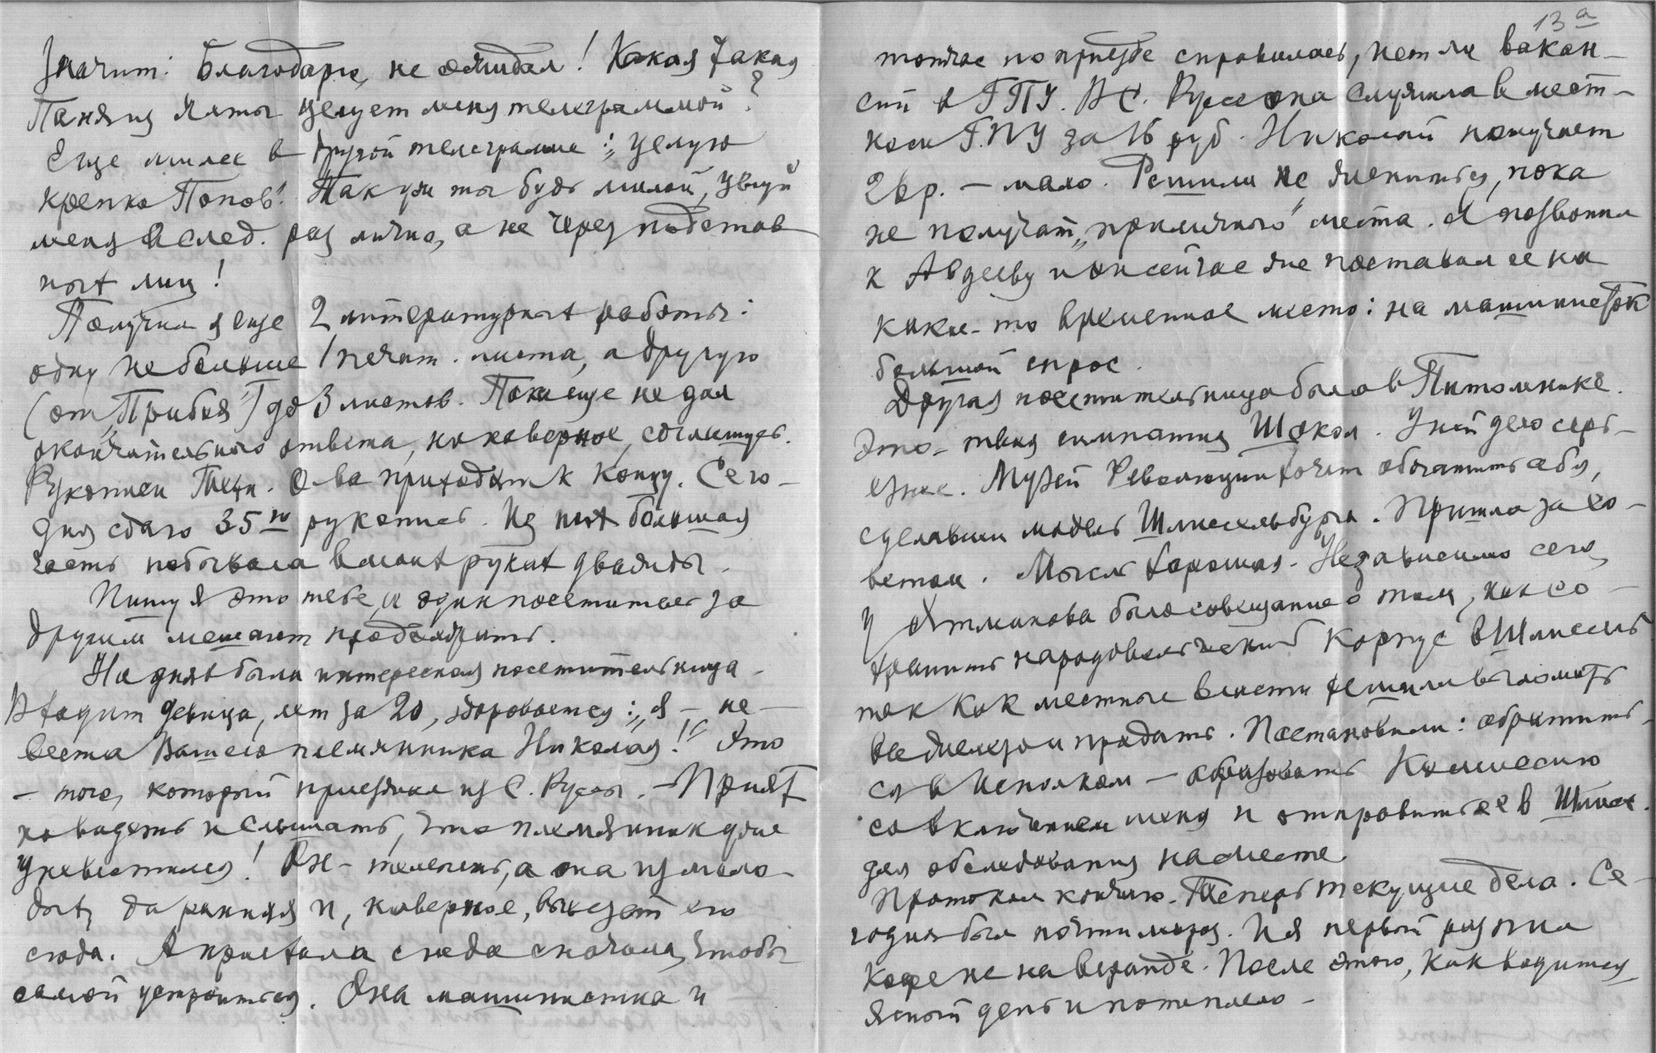 Значит: Благодарю, не ожидал! Какая такая
Паня из Ялты целует меня телеграммой?
Еще милее в другой телеграмме: „Целую
крепко Попов“. Так уж ты будь милой, целуй
меня в след. раз лично, а не через подстав
ных лиц!
Получил я еще 2 литературных работы:
одну не больше 1 печат. листа, а другую
(от „Прибоя“) до 3 листов. Пока еще не дал
окончательного ответа, но наверное, соглашусь.
Рукописи О-ва приходят к концу. Сего-
дня сдаю 35ю рукопись. Из них большая
часть побывала в моих руках дважды.
Пишу я это тебе, и один посетитель за
другим мешают продолжить.
На днях была интересная посетительница.
Входит девица, лет за 20, здоровается: „Я – не-
веста Вашего племянника Николая!“ Это
– того, который приезжал из С. Руссы. – Прият
но видеть и слышать, что племянник уже
уневестился! Он – теленок, а она из моло-
дых, да ранняя и, наверное, вывезет его
сюда. А приехала сюда сначала, чтобы
самой устроиться. Она машинистка и
13 а
тотчас по приезде справилась, нет ли вакан-
сии в ГПУ. В С. Руссе она служила в мест-
ном ГПУ за 16 руб. Николай получает
26 р. – мало. Решили не жениться, пока
не получат „приличного“ места. Я позвонил
к Авдееву и он сейчас же поставил ее на
какое-то временное место: на машинисток
большой спрос.
Другая посетительница была в Питомнике.
Это – твоя симпатия Шакол. У ней дело серь-
езнее. Музей Революции хочет обогатиться,
сделавши модель Шлиссельбурга. Пришла за со-
ветом. Мысль хорошая. Независимо сего,
у Ятманова было совещание о том, как со-
хранить народовольческий корпус в Шлиссель
так как местные власти решили выломать
все железо и продать. Постановили: обратить-
ся в Исполком – образовать Комиссию
со включением меня и отправиться в Шлисс.
для обследования на месте
Протокол кончаю. Теперь текущие дела. Се-
годня был почти мороз. И я первый раз пил
кофе не на веранде. После этого, как водится,
ясный день и потеплело –